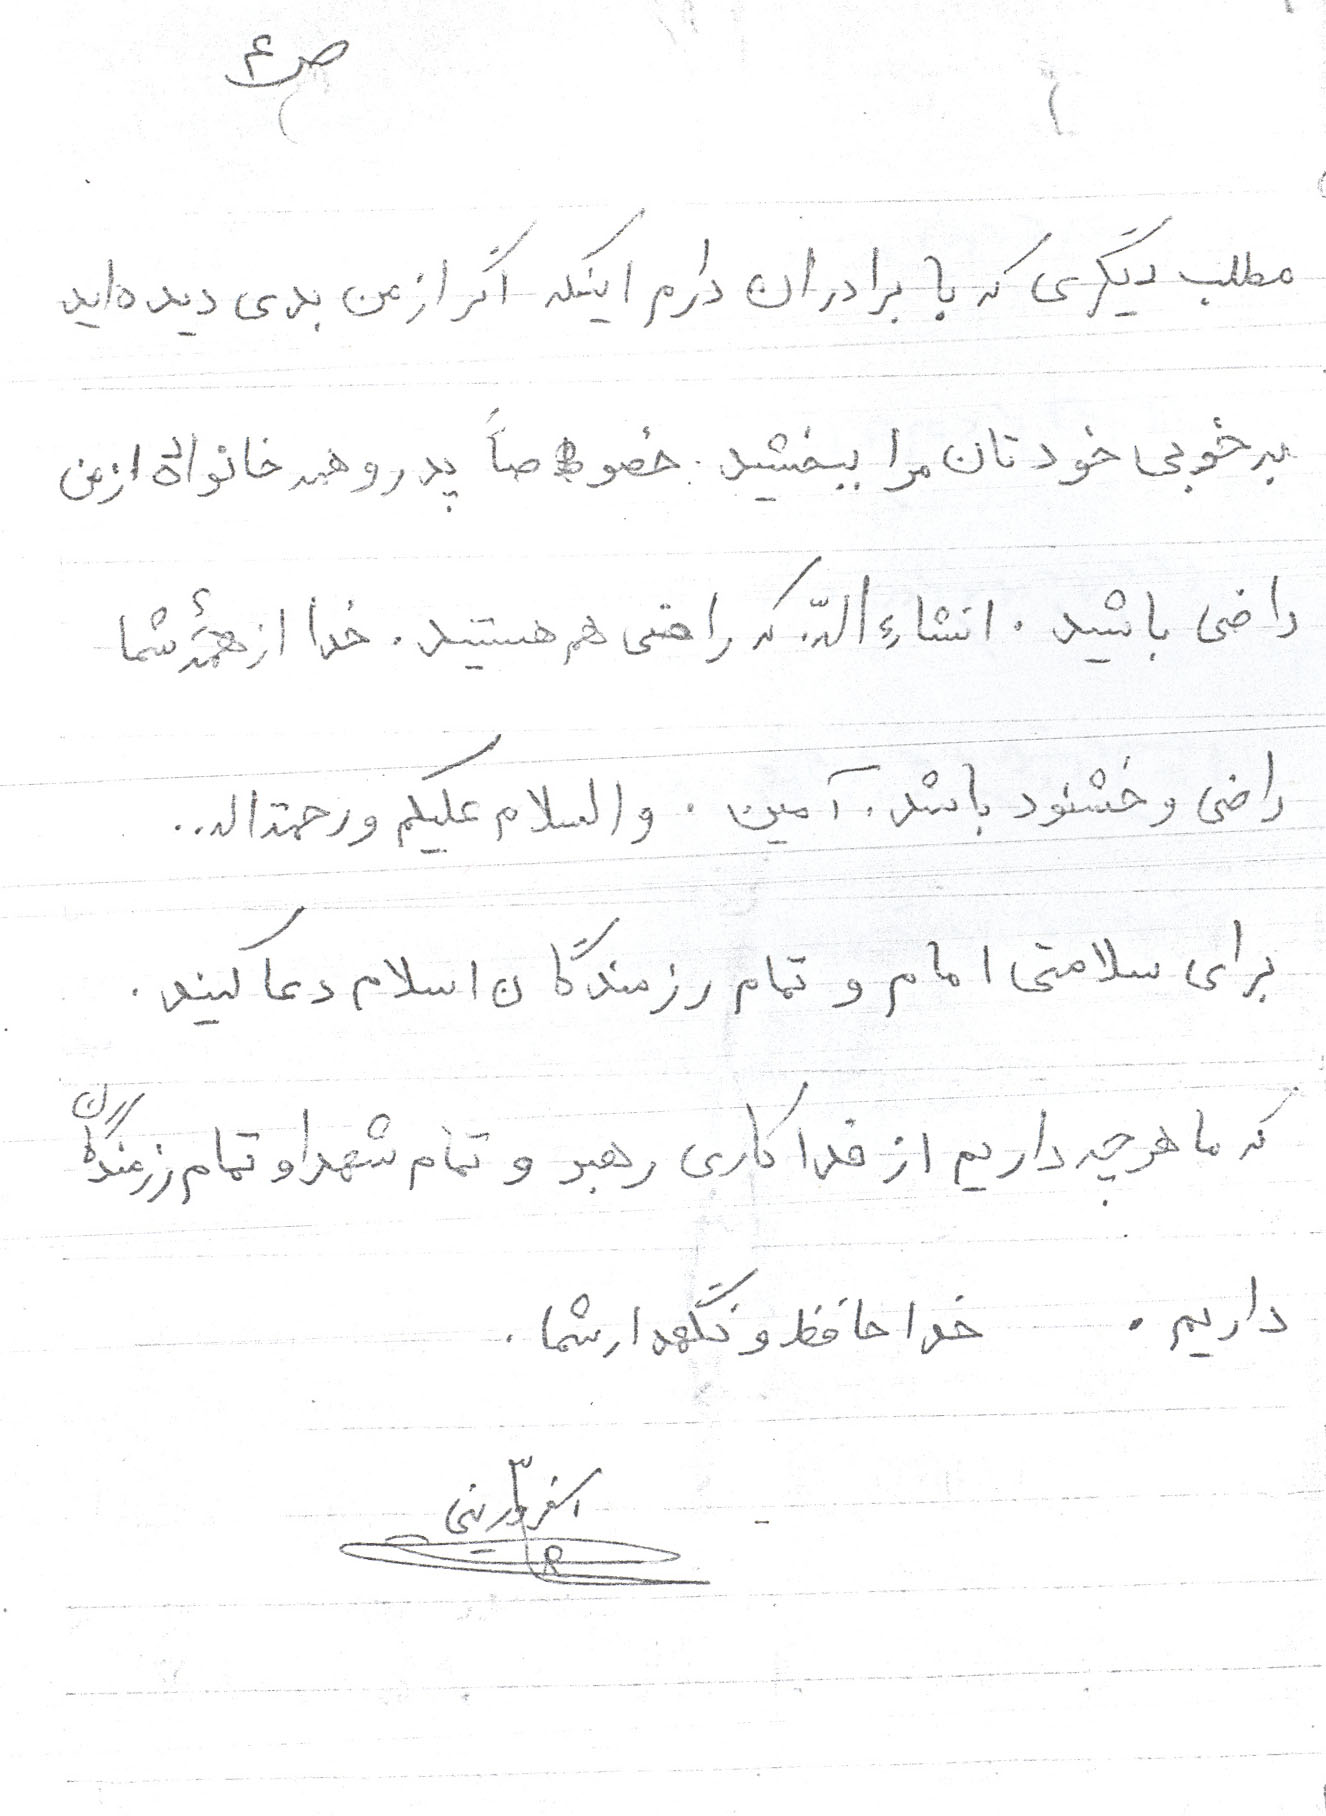 ص ۴
مطلب دیگری که با برادران دارم اینکه اگر از من بدی دیده‌اید
به خوبی خودتان مرا ببخشید. خصوصاً پدر و همه خانواده از من
راضی باشید. انشاءالله که راضی هم هستید. خدا از همهٔ شما
راضی و خشنود باشد. آمین. والسلام علیکم و رحمته‌اله..
برای سلامتی امام و تمام رزمندگان اسلام دعا کنید.
که ما هر چه داریم از فداکاری رهبر و تمام شهدا و تمام رزمندگان
داریم. خدا حافظ و نگهدار شما.